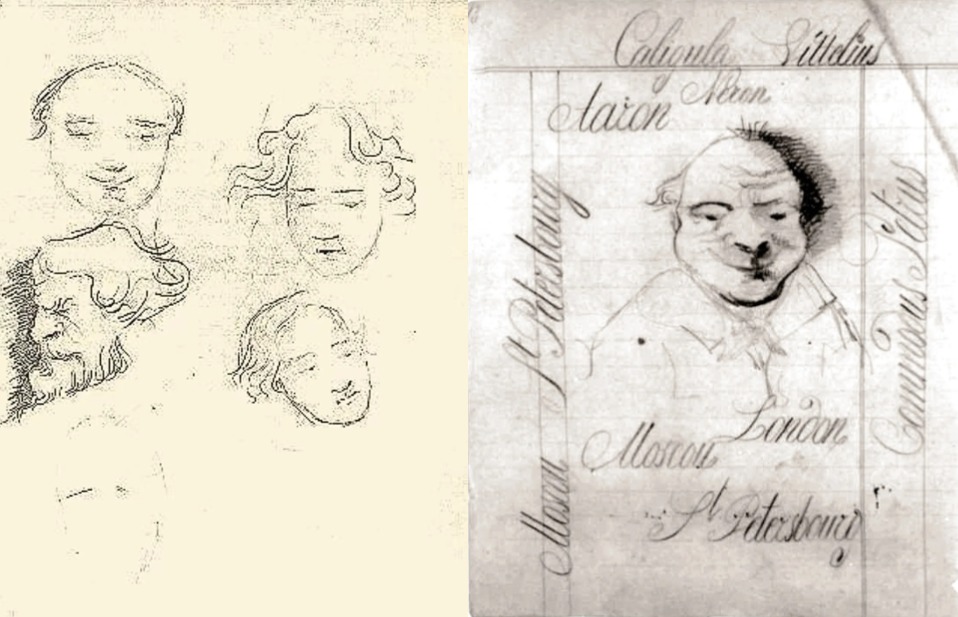 Caligula Vittelius
Neron
Aaron
St Petersbourg
Commodus Petius
London
Moscou
Moscou
St Petersbourg